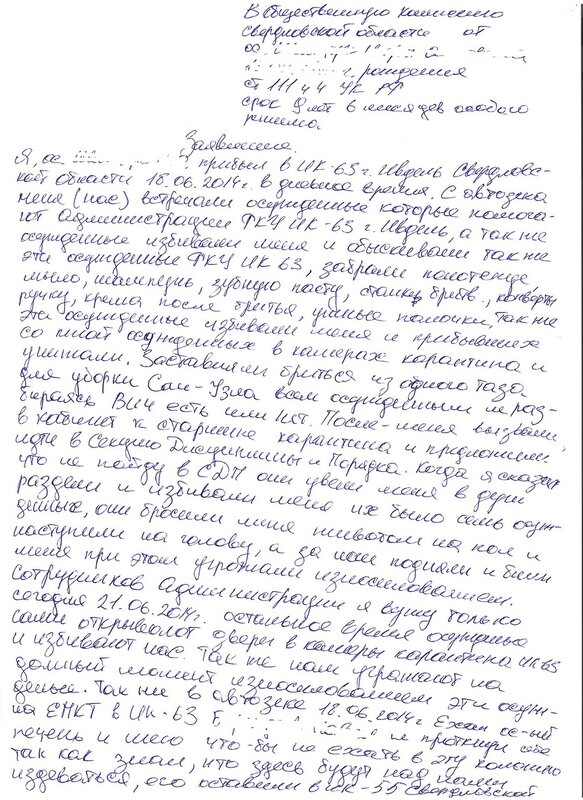 В Общественную комиссию
Свердловской области от
ос.
г. рождения
ст 111 ч 4 УК РФ
срок 9 лет 6 месяцев особого
режима.
Заявление.
Я, ос. прибыл в ИК-63 г. Ивдель Свердловс-
кой области 18.06.2014г. в дневное время. С автозека
меня (нас) встречали осужденные которые помога-
ют Администрации ФКУ ИК-63 г. Ивдель, а так же
осужденные избивали меня и обыскивали так же
эти осужденные ФКУ ИК 63, забрали полотенце
мыло, шампунь, зубную пасту, станки бритв., конверты
ручку, крема после бритья, ушные палочки, так же
эти осужденные избивали меня и прибывших
со мной осужденных в камерах карантина и
унижали. Заставляли бриться из одного таза
для уборки Сан-Узла всем осужденным не раз-
бираясь ВИЧ есть или нет. После меня вызвали
в кабинет к старшине карантина и предложили
идти в Секцию Дисциплины и Порядка. Когда я сказал
что не пойду в СДП они увели меня в душ
раздели и избивали меня их было семь осуж-
денных, они бросили меня животом на пол и
наступили на голову, а за ноги подняли и били
меня при этом угрожали изнасилованием.
Сотрудников Администрации я вижу только
сегодня 21.06.2014г. остальное время осужденые
сами открывают двери в камеры карантина ИК 63
и избивают нас. Так же нам угрожают на
данный момент изнасилованием эти осуж-
деные. Так же в автозеке 18.06.2014г. Ехал ос-ый
на ЕПКТ в ИК-63 проткнул себе
печень и шею что-бы не ехать в эту колонию
так как знал, что здесь будут над ними
издеваться, его оставили в ИК-55 Свердловской